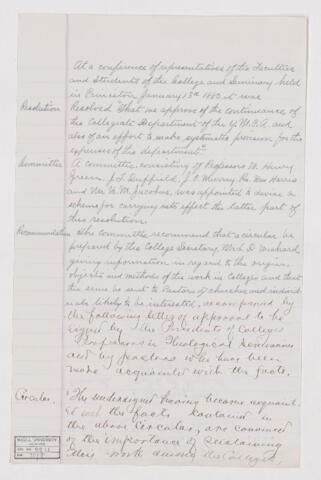 At a conference of representatives of the Faculties
and Students of the College and Seminary, held
in Princeton January 13th 1880 it was
Resolution Resolved "That we approve of the continuance of
the Collegiate Department of the Y.M.C.A. and
also of an effort to make systematic provision for the
expenses of the department"
Committee A committee consisting of Professors W. Henry
Green, J. T. Duffield, J. O. Murray Rev. Harris
and Mr. M. W. Jacobus, was appointed to devise a
scheme for carrying into effect the latter part of
this resolution.
Recommendation The Committee recommend that a circular be
prepared by the College Secretary, Mr. L. D. Wishard,
giving information in regard to the origin,
objects and methods of the work in Colleges and that
the same be sent to Pastors of churches and individ-
uals likely to be interested, accompanied by
the following letter of approval to be
signed by the Presidents of Colleges
Professors in Theological Seminaries
and by pastors who have been
made acquainted with the facts.
Circular. "The undersigned having become acquaint-
ed with the facts contained in
the above Circular, are convinced
of the importance of sustaining
this work among the Colleges,
McGILL UNIVERSITY
ARCHIVES